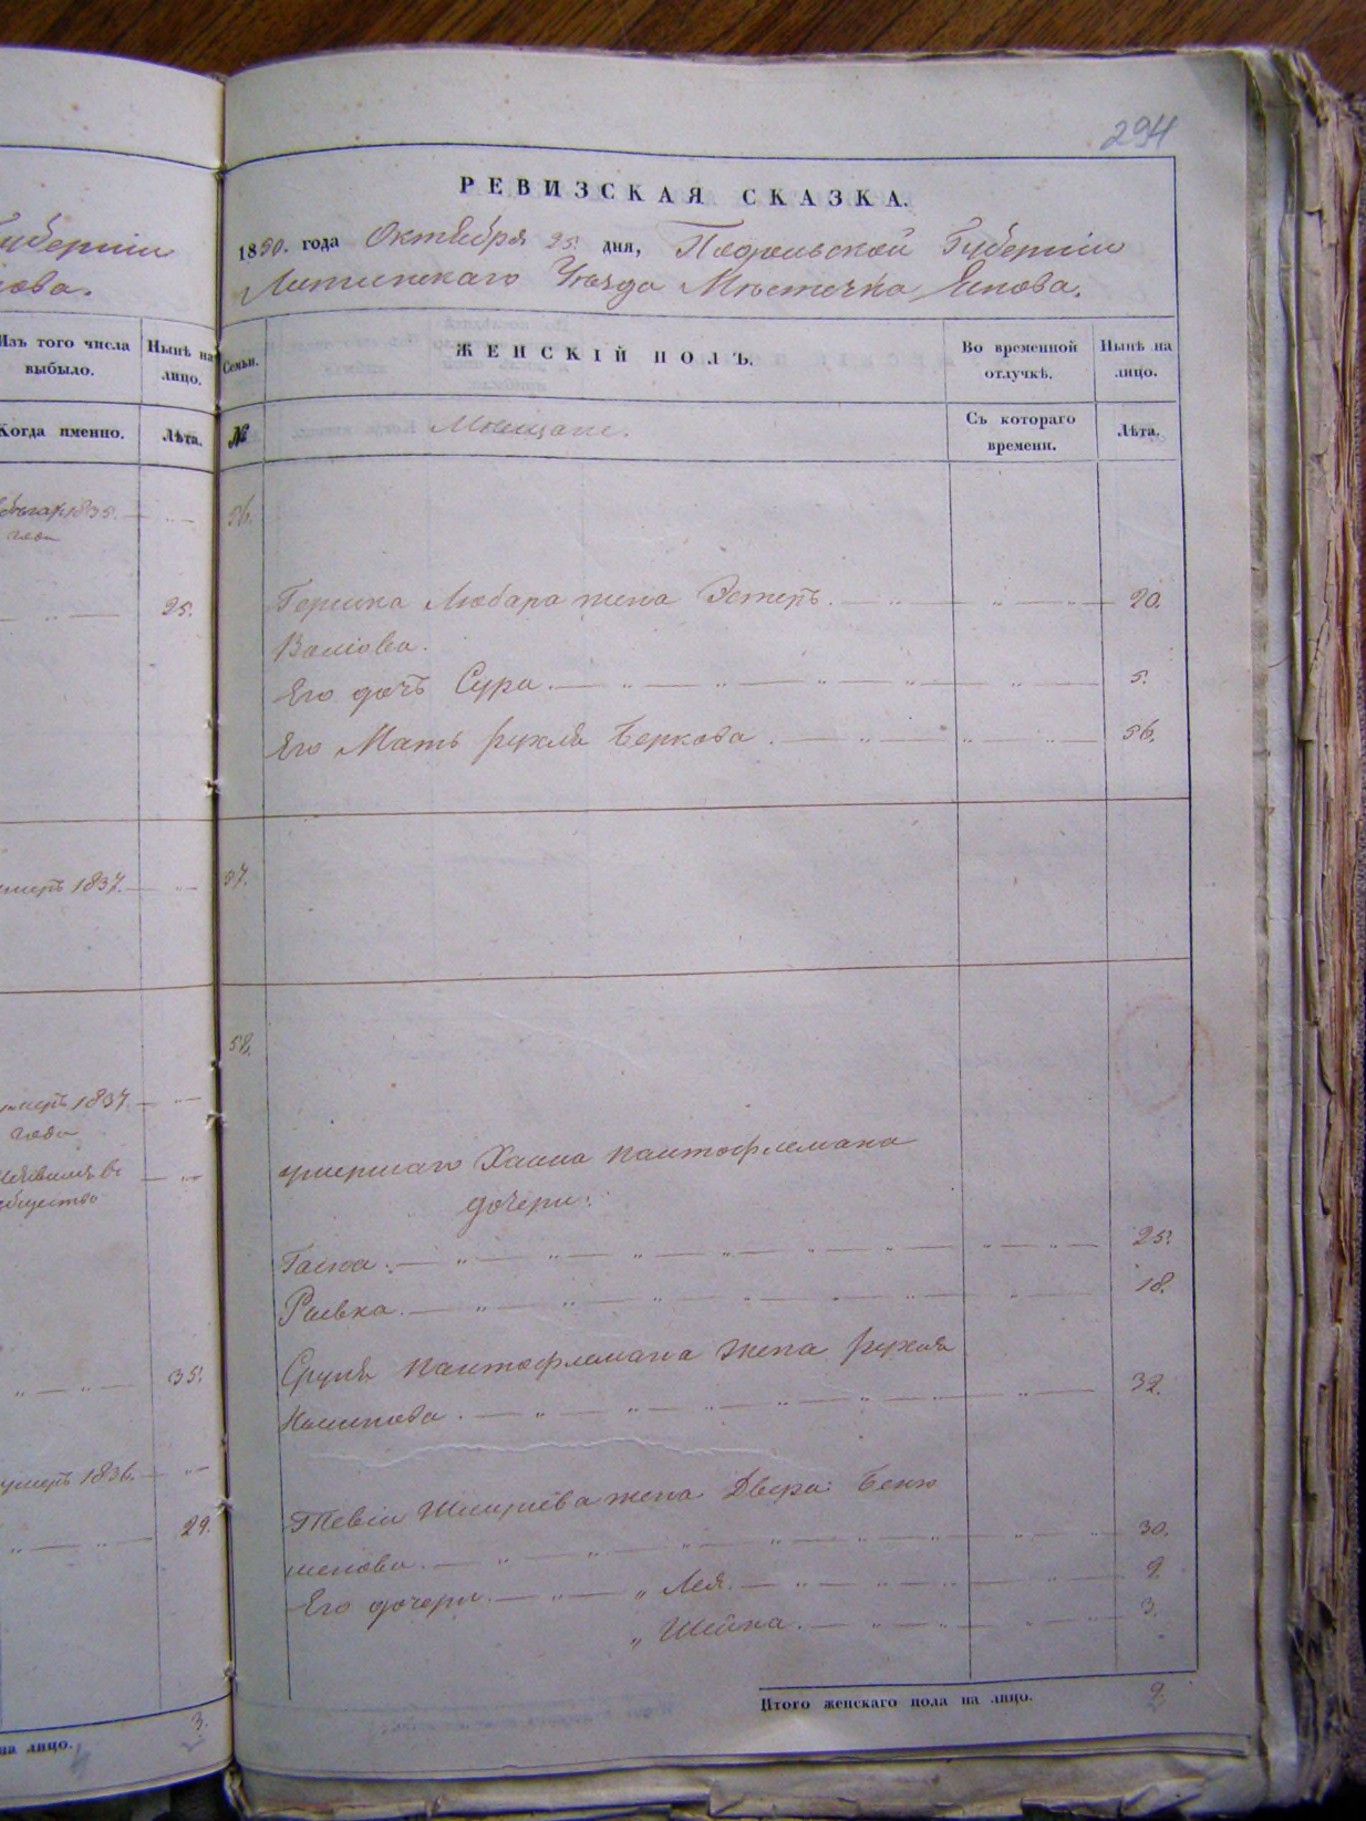 294
РЕВИЗСКАЯ СКАЗКА.
1850. года Октября 25. дня, Подольской Губерніи
Литинскаго Уѣзда Мѣстечка Янова.
Губерніи
нова.
Изъ того числа выбыло.
Нынѣ на лицо.
Когда именно.
Лѣта.
1835.
года
25.
умеръ 1837.
умеръ 1837
года
общество
35.
умеръ 1836.
29.
на лицо.
3.
Семьи.
ЖЕНСКІЙ ПОЛЪ.
Во временной отлучкѣ.
Нынѣ на лицо.
№
Мѣщане.
Съ котораго времени.
Лѣта.
56.
Гершка Любара жена Эстеръ. 20.
Волкова.
Его дочь Сура. 5.
Его Мать Рухля Беркова. 56.
57.
58.
умершаго Хаима Пантофлемана
дочери:
Гасюа. 25.
Ривка. 18.
Сруля Пантофлемана жена Рухля
32.
Тевіи Шмулева жена Двера Бенъ
30.
Его дочери „ Лея. 9
„ Шейна. 3.
Итого женскаго пола на лицо. 9